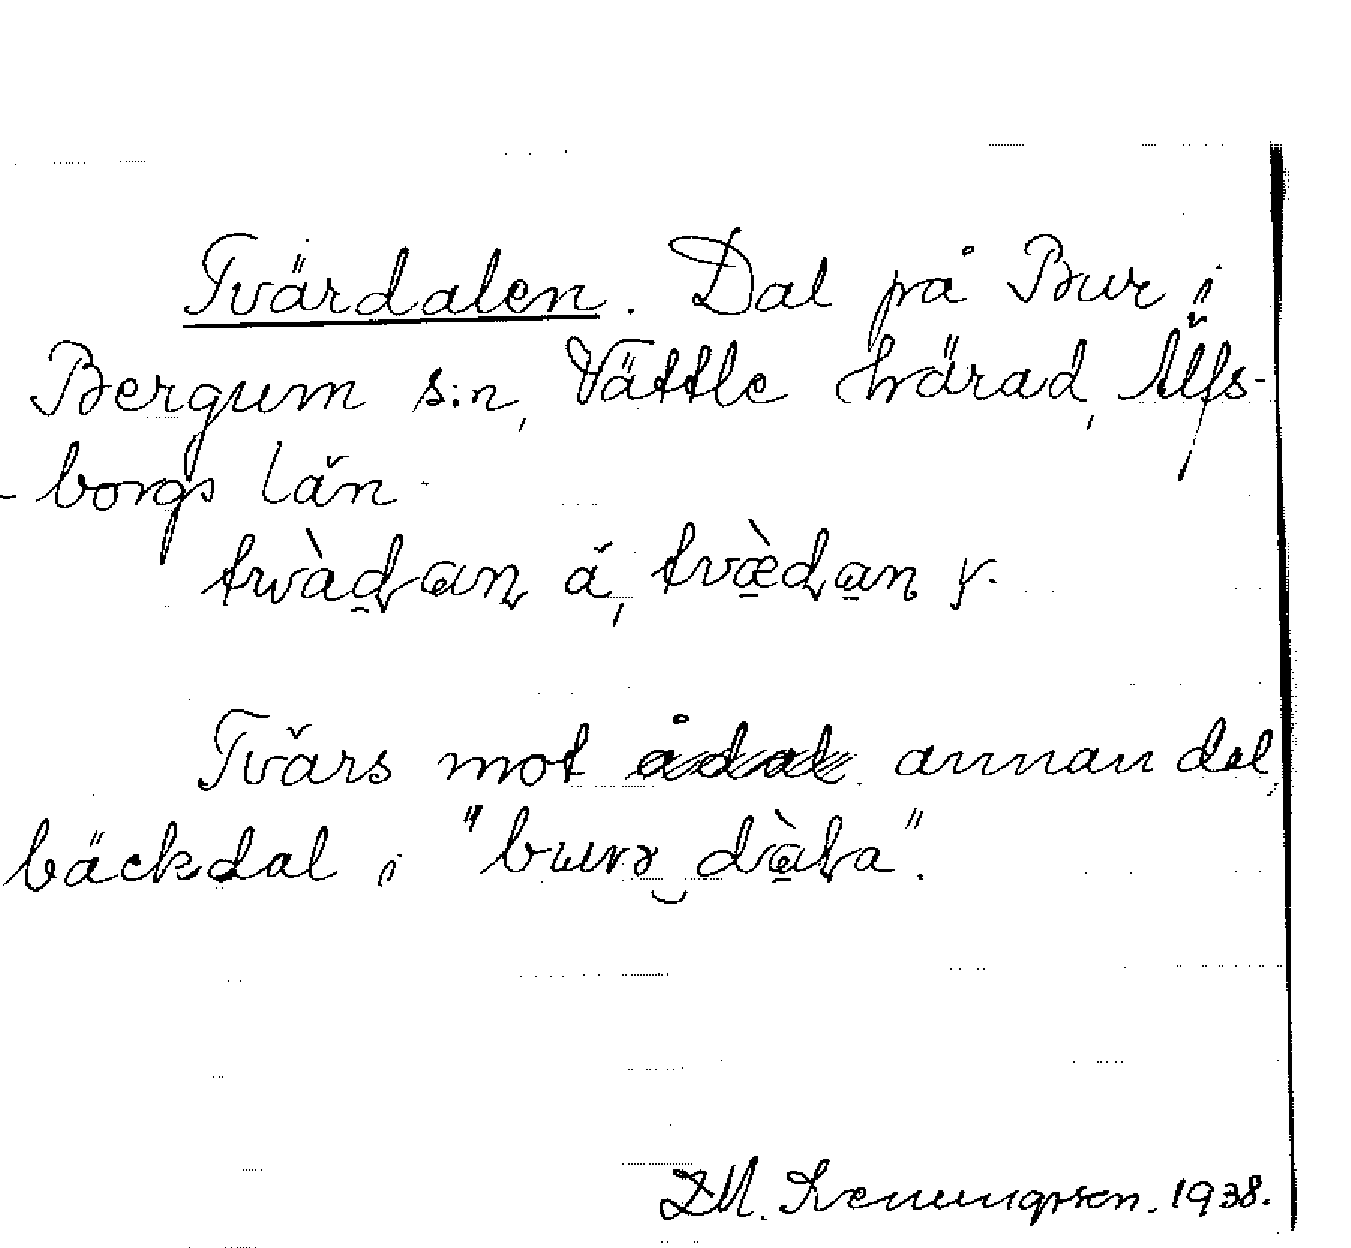 Tvärdalen. Dal på Bur i
Bergum s:n, Vättle härad, Älfs-
-borgs län.
tvàdan ä, tvæ̀dan y.
Tvärs mot annan dal,
bäckdal i "burs dàla".
1938.